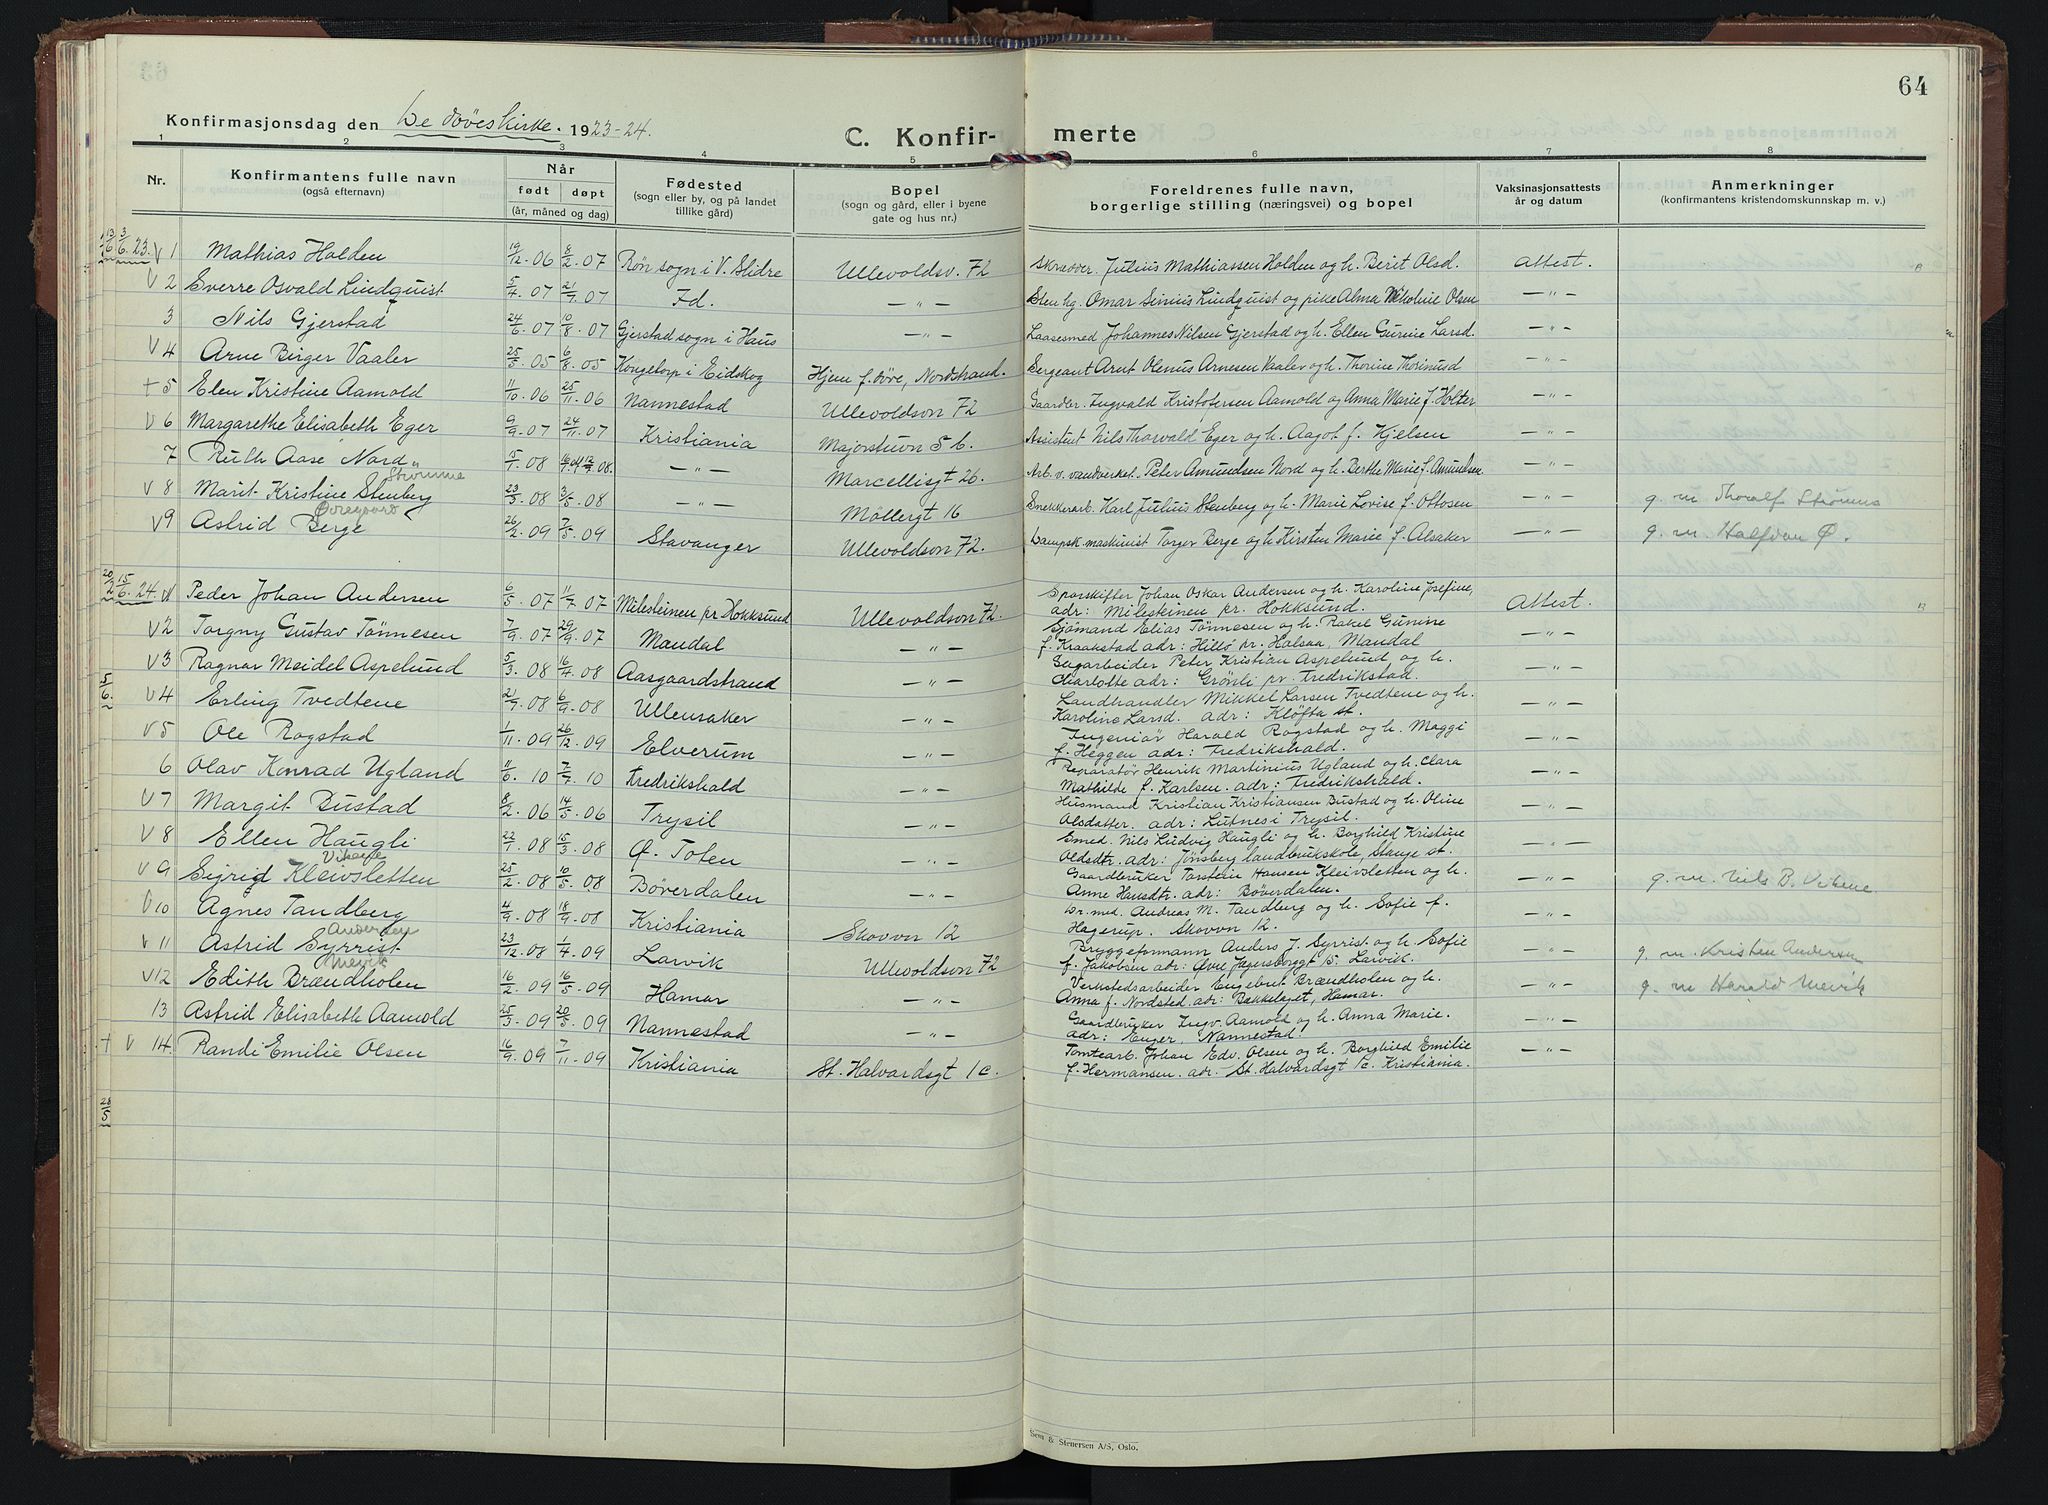 64
Konfirmasjonsdag den De døves kirke. 1923-24.
C. Konfirmerte
1 2 3 4 5 6 7 8
Nr. Konfirmantens fulle navn (også efternavn) Når født døpt (år, måned og dag) Fødested (sogn eller by, og på landet tillike gård) Bopel (sogn og gård, eller i byene gate og hus nr.) Foreldrenes fulle navn, borgerlige stilling (næringsvei) og bopel Vaksinasjonsattests år og datum Anmerkninger (konfirmantens kristendomskunnskap m. v.)
3/6. 23. V 1 Mathias Holden 19/12. 06 8/2. 07 Røn sogn i V. Slidre Ullevoldsv. 72 Skrædder. Julius Mathiassen Holden og h. Berit Olsd. Attest.
V 2 Sverre Osvald Lindquist 5/4. 07 21/7. 07 Id. — " — Sten hg. Omar Sinius Lindquist og pike Alma Nikoline Olsen — " —
3 Nils Gjerstad 24/6. 07 10/8. 07 Gjerstad sogn i Haus — " — Laasesmed Johannes Nilsen Gjerstad og h. Ellen Gurine Larsd. — " —
V 4 Arne Birger Vaaler 25/5. 05 6/8. 05 Kongetorp i Eidskog Hjem f. døve, Nordstrand. Sergeant Arnt Olenus Arnesen Vaaler og h. Thorine Thorinusd — " —
+ 5 Elen Kristine Aamold 11/10. 06 25/11. 06 Nannestad Ullevoldsvn 72 Gaardbr. Ingvald Kristofersen Aamold og Anna Marie f. Holter — " —
V 6 Margarethe Elisabeth Eger 9/9. 07 24/11. 07 Kristiania Majorstuvn 5 b. Assistent Nils Thorvald Eger og h. Aagot f. Kjelsen — " —
7 Ruth Aase Nord 15/1. 08 — " — Marcellisgt 26. Arb. v. vandverket. Peter Amundsen Nord og h. Berthe Marie f. Amundsen — " —
Strømme
V 8 Marit Kristine Stenberg 23/3. 08 3/5. 08 — " — Möllergt 16 Snekkerarb. Karl Julius Stenberg og h. Marie Lovise f. Ottosen — " — g. m. Thoralf Strømme
Øvregaard
V 9 Astrid Berge 26/2. 09 7/5. 09 Stavanger Ullevoldsvn 72. Dampsk. maskinist Torger Berge og h Kirsten Marie f. Alsaker — " — g. m. Halfdan Ø.
20/2 15/6. 24. V 1 Peder Johan Andersen 6/5. 07 11/7. 07 Milesteinen pr Hokksund Ullevoldsvn 72. Sporskifter Johan Oskar Andersen og h. Karoline Josefine, Attest.
adr: Milesteinen pr. Hokksund.
V 2 Torgny Gustav Tönnesen 7/9. 07 29/9. 07 Mandal — " — Sjömand Elias Tönnesen og h. Rakel Gunine — " —
f. Kraakstad adr: Hillø pr. Halsaa, Mandal
V 3 Ragnar Meidel Aspelund 5/3. 08 16/4. 08 Aasgaardstrand — " — Sagarbeider Peter Kristian Aspelund og h. — " —
Charlotte adr: Grönli pr. Fredrikstad.
5/6. V 4 Erling Tvedtene 21/7. 08 6/9. 08 Ullensaker — " — Landhandler Mikkel Larsen Tvedtene og h. — " —
Karoline Larsd. adr: Klöfta st.
V 5 Ole Rogstad 1/11. 09 26/12. 09 Elverum — " — Ingeniör Harald Rogstad og h. Maggi — " —
f. Heggen adr: Fredrikshald.
6 Olav Konrad Ugland 11/6. 10 7/7. 10 Fredrikshald — " — Reparatør Henrik Martinius Ugland og h. Clara — " —
Mathilde f. Karlsen. adr: Fredrikshald.
V 7 Margit Bustad 8/2. 06 14/5. 06 Trysil — " — Husmand Kristian Kristiansen Bustad og h. Oline — " —
Olsdatter. adr: Lutnes i Trysil.
V 8 Ellen Haugli 22/1. 08 15/3. 08 Ø. Toten — " — Smed. Nils Ludvig Haugli og h. Borghild Kristine — " —
Olsdtr. adr: Jønsberg landbrukskole, Stange st.
Vikene
V 9 Sigrid Kleivsletten 25/2. 08 10/5. 08 Böverdalen — " — Gaardbruker Torstein Hansen Kleivsletten og h. — " — g. m. Nils B. Vikene
Anne Hansdtr. adr: Böverdalen.
V 10 Agnes Tandberg 4/9. 08 18/9. 08 Kristiania Skovvn 12 Dr. med. Andreas M. Tandberg og h. Sofie f. — " —
Hagerup. Skovvn 12.
Andersen
V 11 Astrid Syrrist 23/12. 08 1/4. 09 Larvik Ullevoldsvn 72 Bryggeformann Anders J. Syrrist og h. Sofie — " — g. m. Kristen Andersen
f. Jakobsen adr: Øvre Jegersborggt 5. Larvik.
Mevik
V 12 Edith Brændholen 16/2. 09 16/5. 09 Hamar — " — Verkstedsarbeider Engebret Brændholen og h. — " — g. m Harald Mevik
Anna f. Nordsted. adr: Bækkelaget, Hamar.
13 Astrid Elisabeth Aamold 25/3. 09 20/5. 09 Nannestad — " — Gaardbruker Ingv. Aamold og h. Anna Marie. — " —
adr: Enger, Nannestad
+ V 14. Randi Emilie Olsen 16/9. 09 7/11. 09 Kristiania St. Halvardsgt 1c. Tomtearb. Johan Edv. Olsen og h. Borghild Emilie — " —
f. Hermansen. adr. St. Halvardsgt 1c. Kristiania.
28/5
Sem & Stenersen A/S, Oslo.